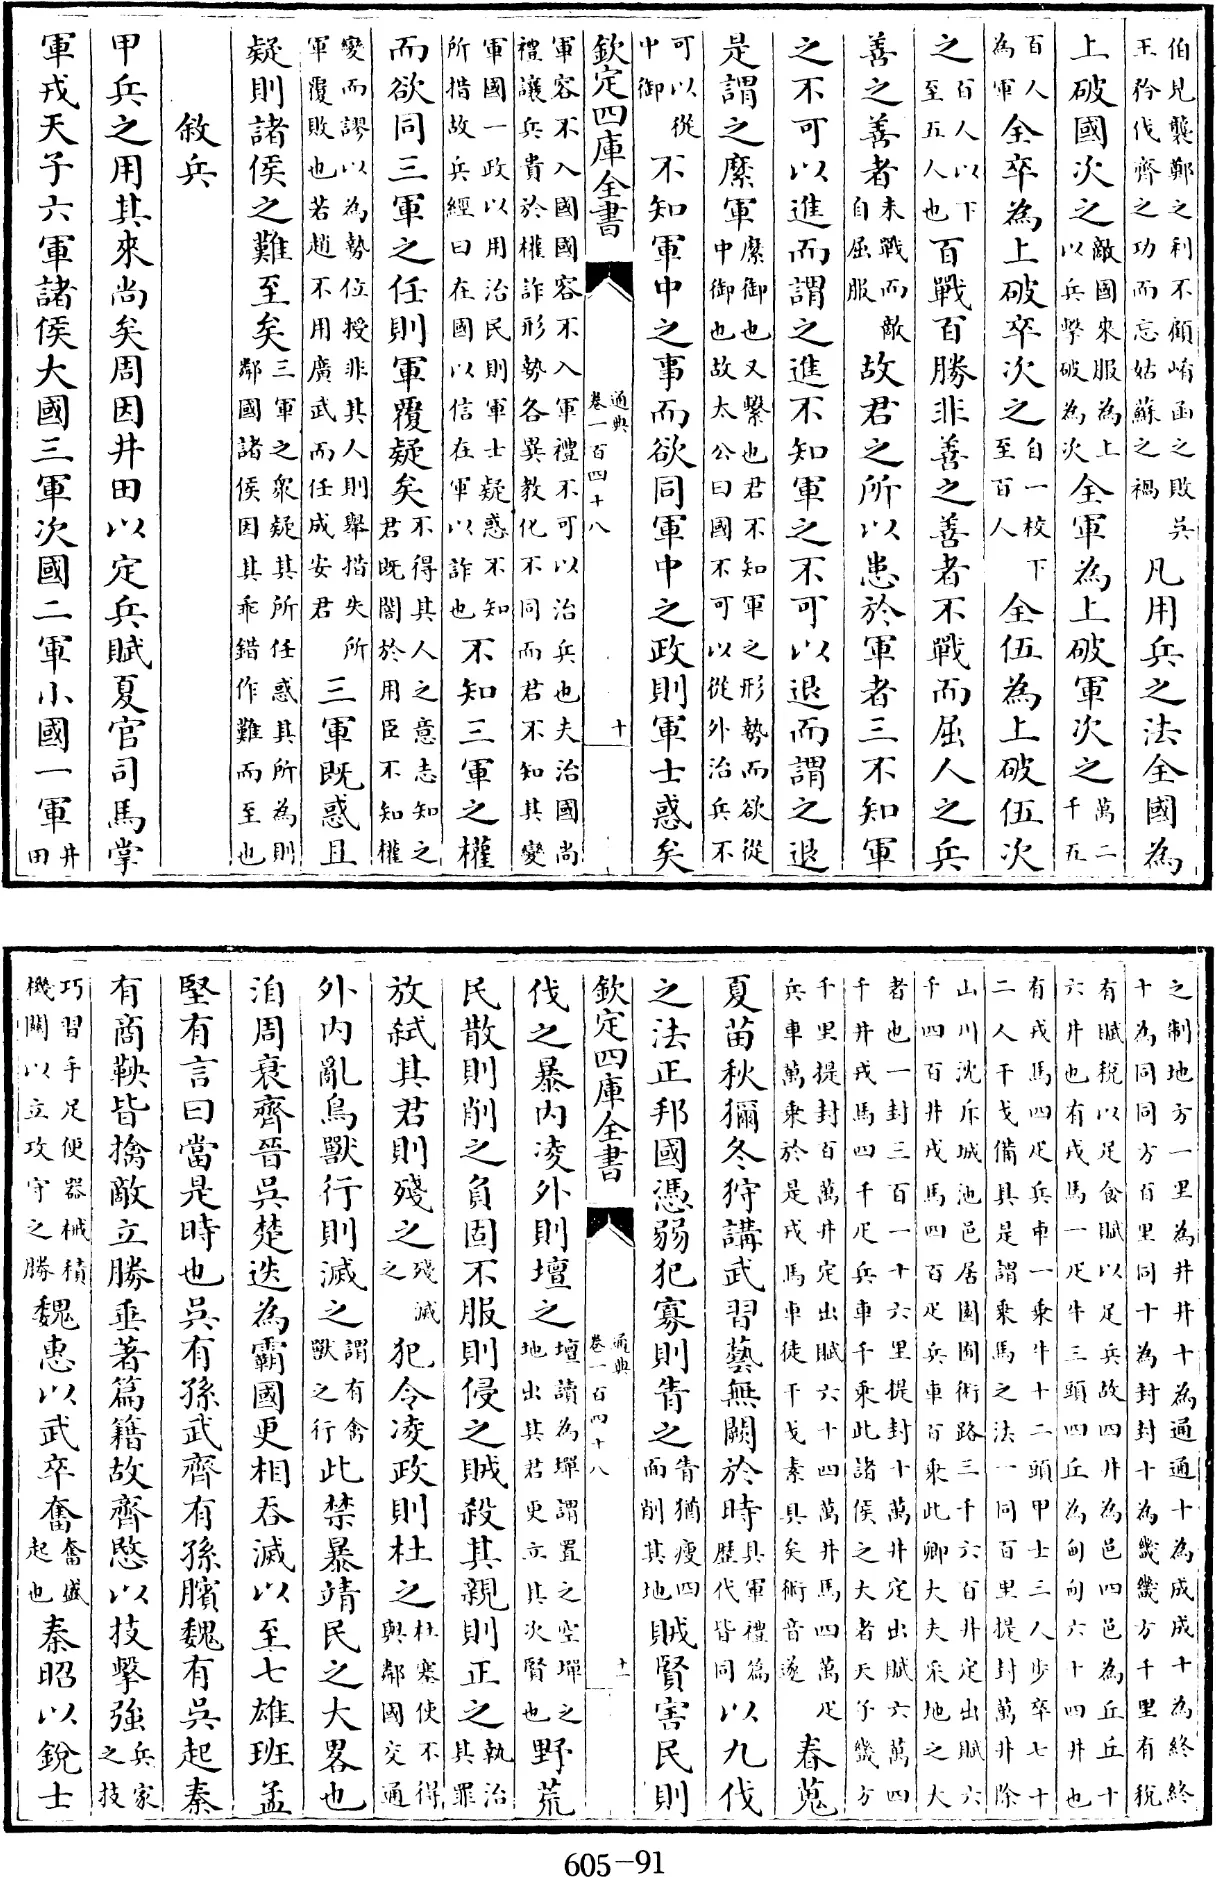 伯見襲鄭之利不顧崤函之敗吳王矜伐齊之功而忘姑蘇之禍凡用兵之法全國為
上破國次之敵國來服為上以兵擊破為次全軍為上破軍次之萬二千五
百人為軍全卒為上破卒次之自一校下至百人全伍為上破伍次
之百人以下至五人也百戰百勝非善之善者不戰而屈人之兵
善之善者未戰而敵自屈服故君之所以患於軍者三不知軍
之不可以進而謂之進不知軍之不可以退而謂之退
是謂之縻軍縻御也又繫也君不知軍之形勢而欲從中御也故太公曰國不可以從外治兵不
可以從中御不知軍中之事而欲同軍中之政則軍士惑矣
欽定四庫全書 通典卷一百四十八 十
軍容不入國國容不入軍禮不可以治兵也夫治國尚禮讓兵貴於權詐形勢各異教化不同而君不知其變
軍國一政以用治民則軍士疑惑不知所措故兵經曰在國以信在軍以詐也不知三軍之權
而欲同三軍之任則軍覆疑矣不得其人之意志知之君既闇於用臣不知權
變而謬以為勢位授非其人則舉措失所軍覆敗也若趙不用廣武而任成安君三軍既惑且
疑則諸侯之難至矣三軍之衆疑其所任惑其所為則鄰國諸侯因其乖錯作難而至也
敘兵
甲兵之用其來尚矣周因井田以定兵賦夏官司馬掌
軍戎天子六軍諸侯大國三軍次國二軍小國一軍井田
之制地方一里為井井十為通通十為成成十為終終十為同同方百里同十為封封十為畿畿方千里有稅
有賦稅以足食賦以足兵故四井為邑四邑為丘丘十六井也有戎馬一疋牛三頭四丘為甸甸六十四井也
有戎馬四疋兵車一乘牛十二頭甲士三人步卒七十二人干戈備具是謂乘馬之法一同百里提封萬井除
山川沈斥城池邑居園囿術路三千六百井定出賦六千四百井戎馬四百疋兵車百乘此卿大夫采地之大
者也一封三百一十六里提封十萬井定出賦六萬四千井戎馬四千疋兵車千乘此諸侯之大者天子畿方
千里提封百萬井定出賦六十四萬井馬四萬疋兵車萬乘於是戎馬車徒干戈素具矣術音遂春蒐
夏苗秋獮冬狩講武習藝無闕於時具軍禮篇歷代皆同以九伐
之法正邦國憑弱犯寡則眚之眚猶瘦四面削其地賊賢害民則
欽定四庫全書 通典卷一百四十八 十一
伐之暴内凌外則壇之壇讀為墠謂置之空墠之地出其君更立其次賢也野荒
民散則削之負固不服則侵之賊殺其親則正之執治其罪
放弑其君則殘之殘滅之犯令凌政則杜之杜塞使不得與鄰國交通
外内亂鳥獸行則滅之謂有禽獸之行此禁暴靖民之大畧也
洎周衰齊晉吳楚迭為霸國更相吞滅以至七雄班孟
堅有言曰當是時也吳有孫武齊有孫臏魏有吳起秦
有商鞅皆擒敵立勝垂著篇籍故齊愍以技擊強兵家之技
巧習手足便器械積機關以立攻守之勝魏惠以武卒奮奮盛起也秦昭以銳士
605-91